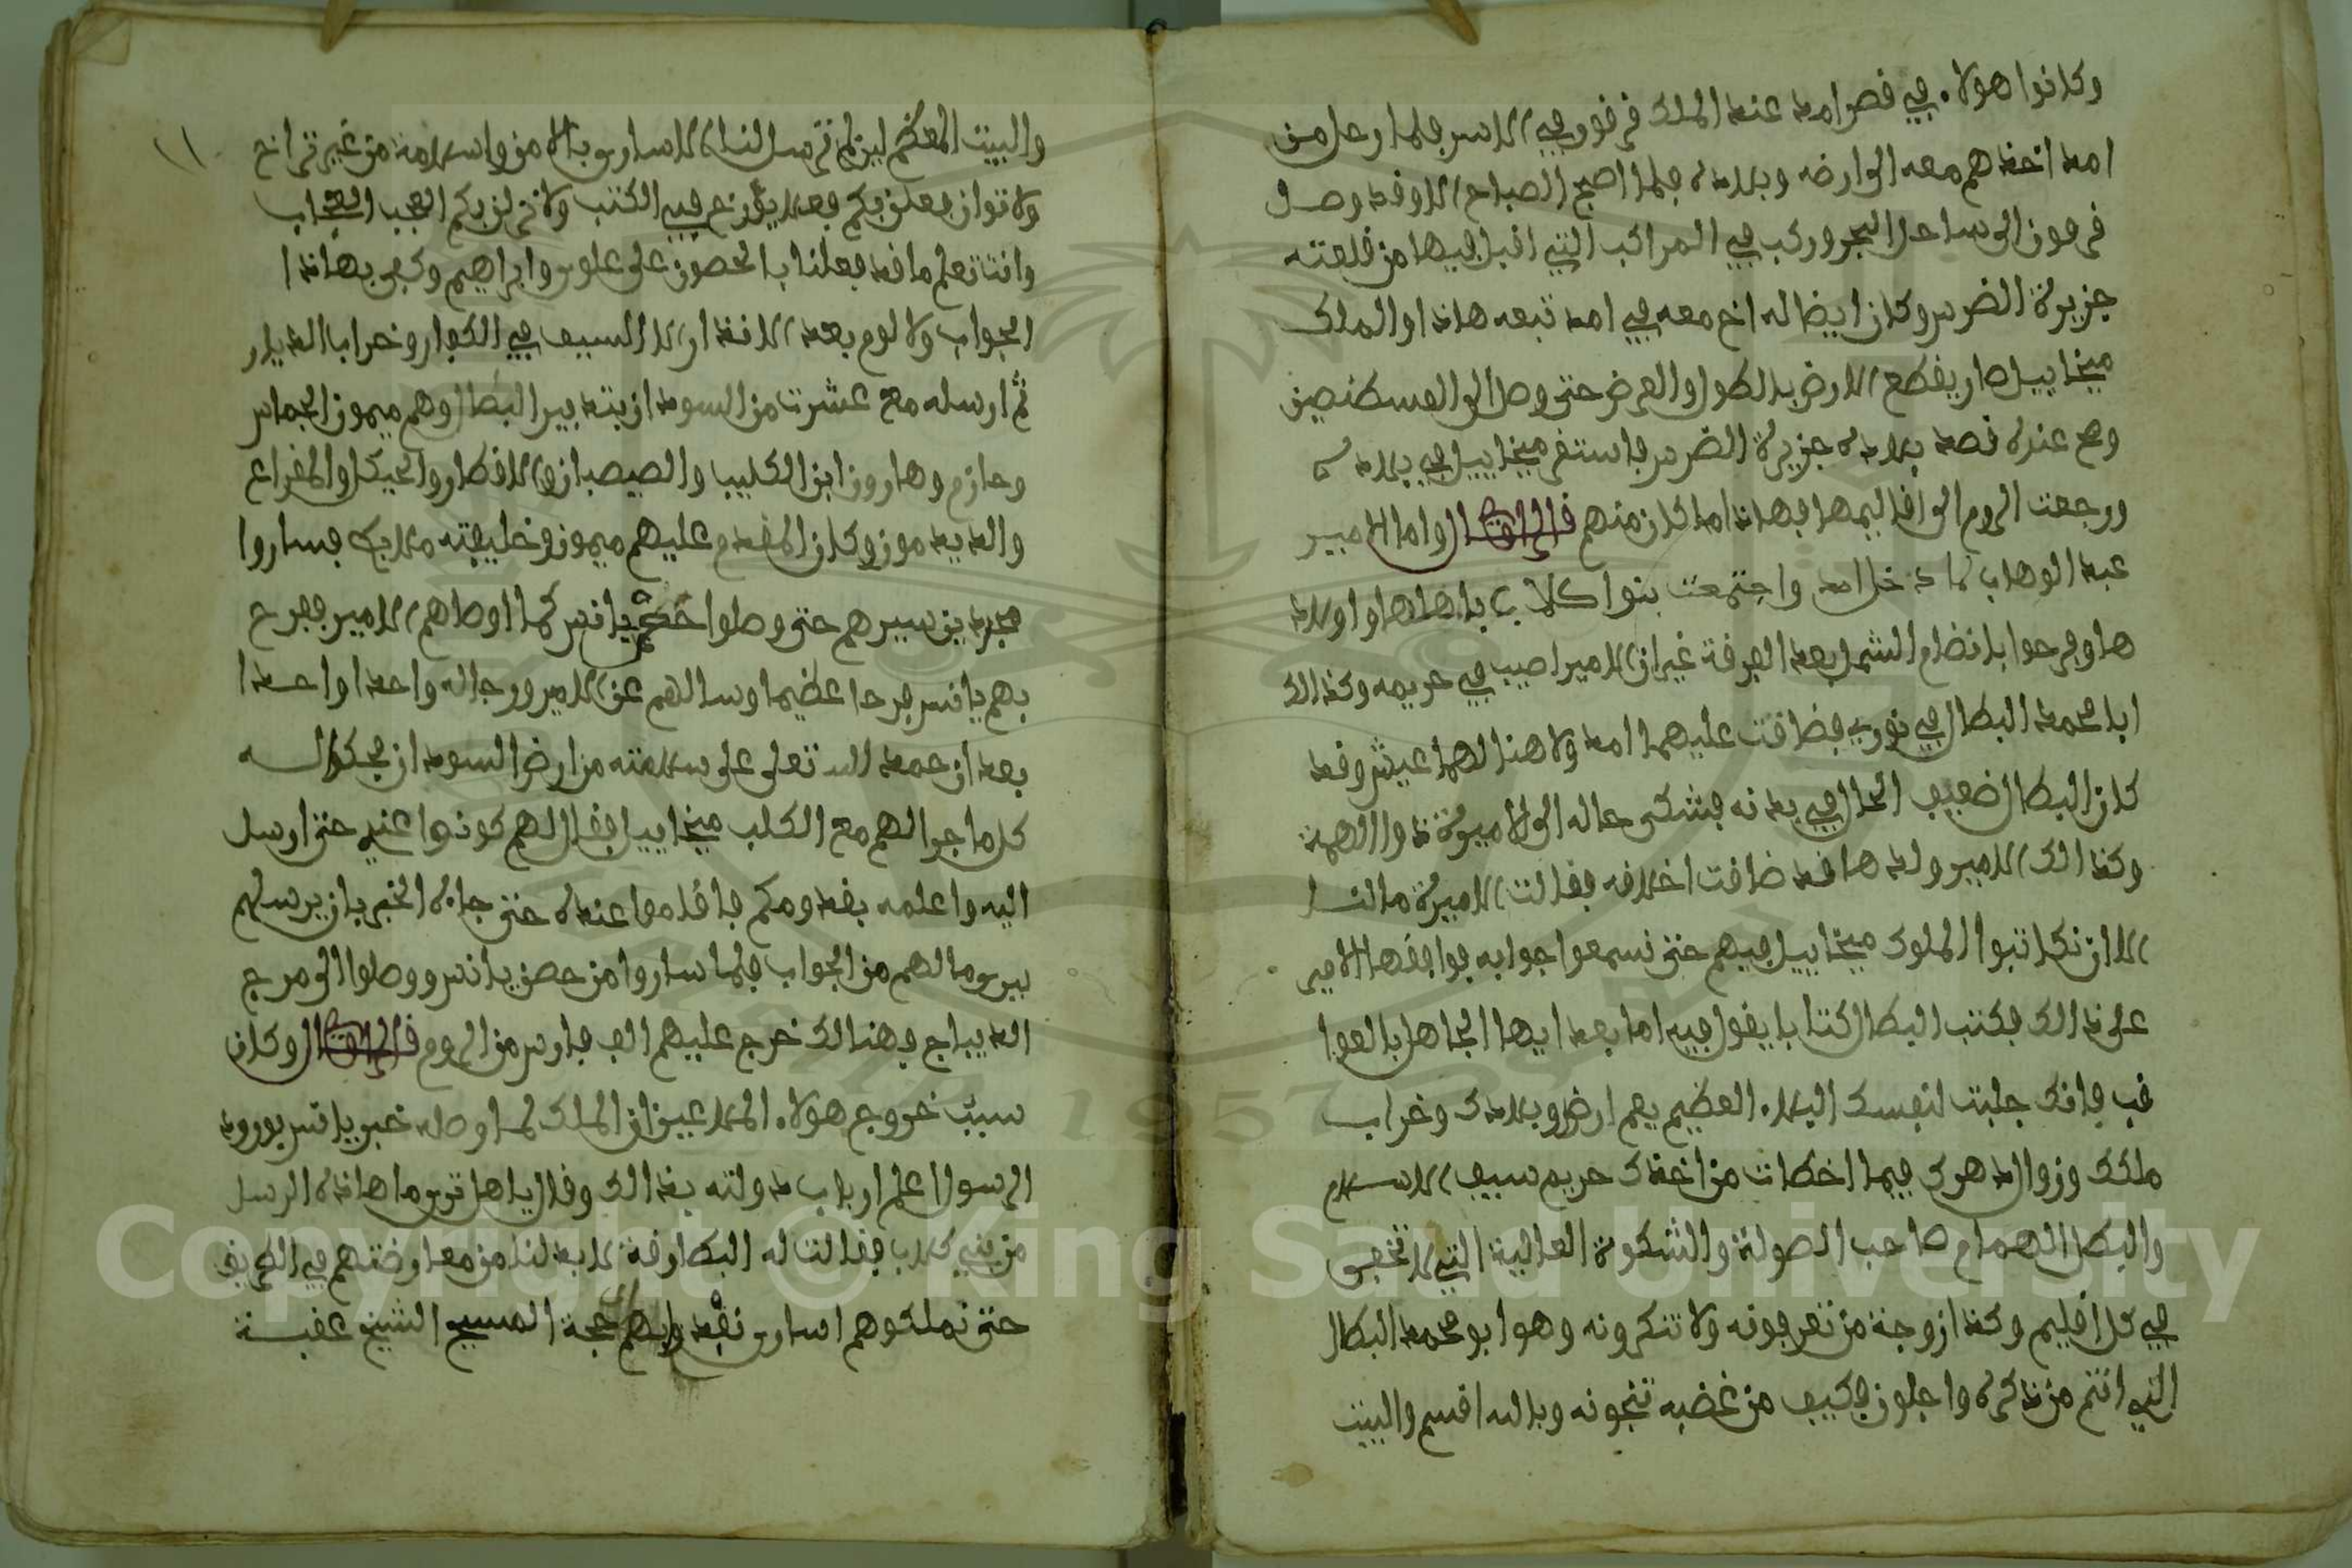 وكانوا هولاء في قصر امد عند الملك قرقور في الاسر فلما رحل من
امد اخذهم معه الى ارضه وبلاده فلما اصبح الصباح الا وقد وصل
فرمون الى ساحل البحر وركب في المراكب التي اقبل فيها من قلعته
جزيرة الضرس وكان ايضا له اخ معه في امد تبعه هاذا والملك
ميخاييل صار يقطع الارض بالطول والعرض حتى وصل الى القسطنطين
وهي عنده قصد بلاده جزيرة الضرس فاستقر ميخاييل في بلاده
ورجعت الروم الى اقاليمها فهاذا ما كان منهم قال الراوي واما الامير
عبد الوهاب لما دخل امد واجتمعت بنوا كلاب باهلها واولاد
ها وفرحوا بانضام الشمل بعد الفرقة غير ان الامير اصيب في حريمه وكذالك
ابا محمد البطال في نوري فضاقت عليهما امد ولا هنا لهما عيش وقد
كان البطال ضعيف الحال في بدنه فشكى حاله الى الاميرة ذوا الهمة
وكذالك الامير ولدها قد ضاقت اخلاقه فقالت الاميرة ما لنا
الا ان نكاتبوا الملوك ميخاييل فيهم حتى نسمعوا جوابه فوافقها الامير
على ذالك فكتب البطال كتابا يقول فيه اما بعد ايها الجاهل بالعوا
قب فانك جلبت لنفسك البلاء العظيم يعم ارضك وبلادك وخراب
ملكك وزوال دهرك فيما اخطات من اخذك حريم سيف الاسلام
والبطل الهمام صاحب الصولة والشطوة العالية التي لا تخفى
في كل اقليم وكذا زوجة من تعرفونه ولا تنكرونه وهوا ابو محمد البطال
الذي انتم من ذكره واجلون فكيف من غضبه تنجونه وبالله اقسم والبيت
١١
والبيت المعظم لين لم ترسل لنا الاسارى بالامن والسلامة من غير تراخ
ولا توان لنفعلن بكم فعلا يورخ فيه الكتب ولا نزلن بكم العجب العجاب
وانت تعلم ما قد فعلنا بالحصون على علوس وابراهيم وكفى بهاذا
الجواب ولا لوم بعد الانذار الا السيف في الكفار وخراب الديار
ثم ارسله مع عشرت من السودان بتدبير البطال وهم ميمون الجماس
وحازم وهارون ابن الكليب والصيصبان والاقطار والحيكل والمفزاع
والديدمون وكان المقدم عليهم ميمون وخليفته ملاعب فساروا
مجدين سيرهم حتى وصلوا حصن يانس كما اوصاهم الامير ففرح
بهم يانس فرحا عظيما وسالهم عن الامير ورجاله واحدا واحدا
بعد ان حمد الله تعلى على سلامته من ارض السودان فحكوا له
كل ما جرا لهم مع الكلب ميخاييل فقال لهم كونوا عندي حتى ارسل
اليه واعلمه بقدومكم فاقاموا عنده حتى جاءه الخبر بان يرسلهم
يرى ما لهم من الجواب فلما ساروا من حصن يانس ووصلوا الى مرج
الديباج وهنالك خرج عليهم الف فارس من الروم قال الراوي وكان
سبب خروج هولاء الملاعين ان الملك لما وصله خبر يانس بورود
الرسول اعلم ارباب دولته بذالك وقال يا هل ترى ما هاذه الرسل
من بني كلاب فقالت له البطارقة لابد لنا من معارضتهم في الطريق
حتى نملكوهم اسارى نفد وابهم حجة المسيح الشيخ عقبة
Copyright © King Saud University
1957